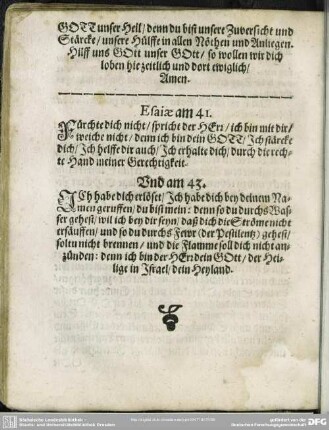 GOTT unser Hell / denn du bist unsere Zuversicht und
Stärcke / unsere Hülffe in allen Nöthen und Anliegen.
Hilff uns GOtt unser GOtt / so wollen wir dich
loben hie zeitlich und dort ewiglich /
Amen.
Esaiæ am 41.
Fürchte dich nicht / spricht der HErr / ich bin mit dir /
weiche nicht / denn ich bin dein GOtt / Jch stärcke
dich / Jch helffe dir auch / Jch erhalte dich / durch die rech-
te Hand meiner Gerechtigkeit.
Vnd am 43.
JCh habe dich erlöset / Jch habe dich bey deinem Na-
men geruffen / du bist mein: denn so du durchs Was-
ser gehest / wil ich bey dir seyn / daß dich die Ströme nicht
ersäuffen / und so du durchs Fewr (der Pestilentz) gehest /
soltu nicht brennen / und die Flamme soll dich nicht an-
zünden: denn ich bin der HErr dein GOtt / der Hei-
lige in Israel / dein Heyland.